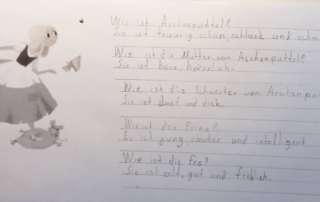 Wie ist Aschenputtel?
Sie ist traurig, schön, schlank und
Wie ist die Mutter von Aschenputtel?
Sie ist böse,
Wie ist die Schwester von
Sie ist doof und dick.
Wie ist der Prinz?
Er ist jung, und intelligent.
Wie ist die Fee?
Sie ist alt, gut und